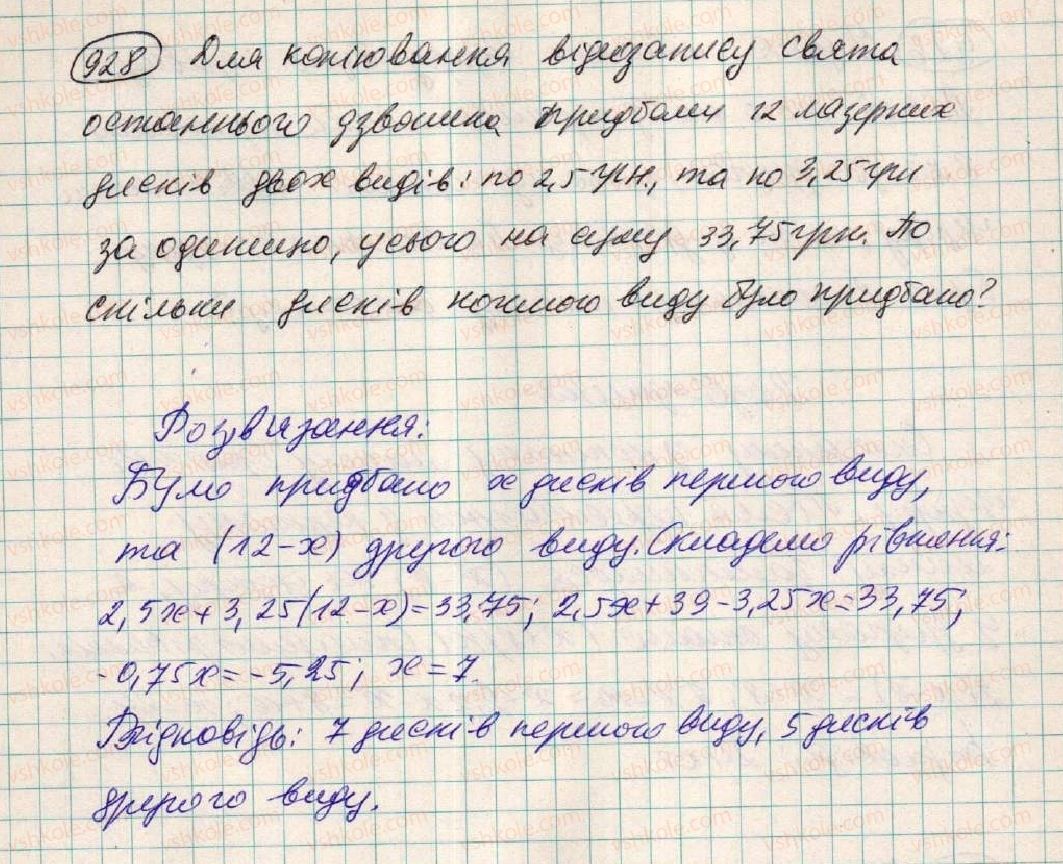 928 Для копіювання відеозапису свята
останнього дзвоника придбали 12 лазерних
дисків двох видів: по 2,5 грн., та по 3,25 грн
за одиницю, усього на суму 33,75 грн. По
скільки дисків кожного виду було придбано?
Розв'язання:
Було придбано x дисків першого виду,
та (12-x) другого виду. Складемо рівняння:
2,5x+3,25(12-x)=33,75; 2,5x+39-3,25x=33,75;
-0,75x=-5,25; x=7.
Відповідь: 7 дисків першого виду, 5 дисків
другого виду.